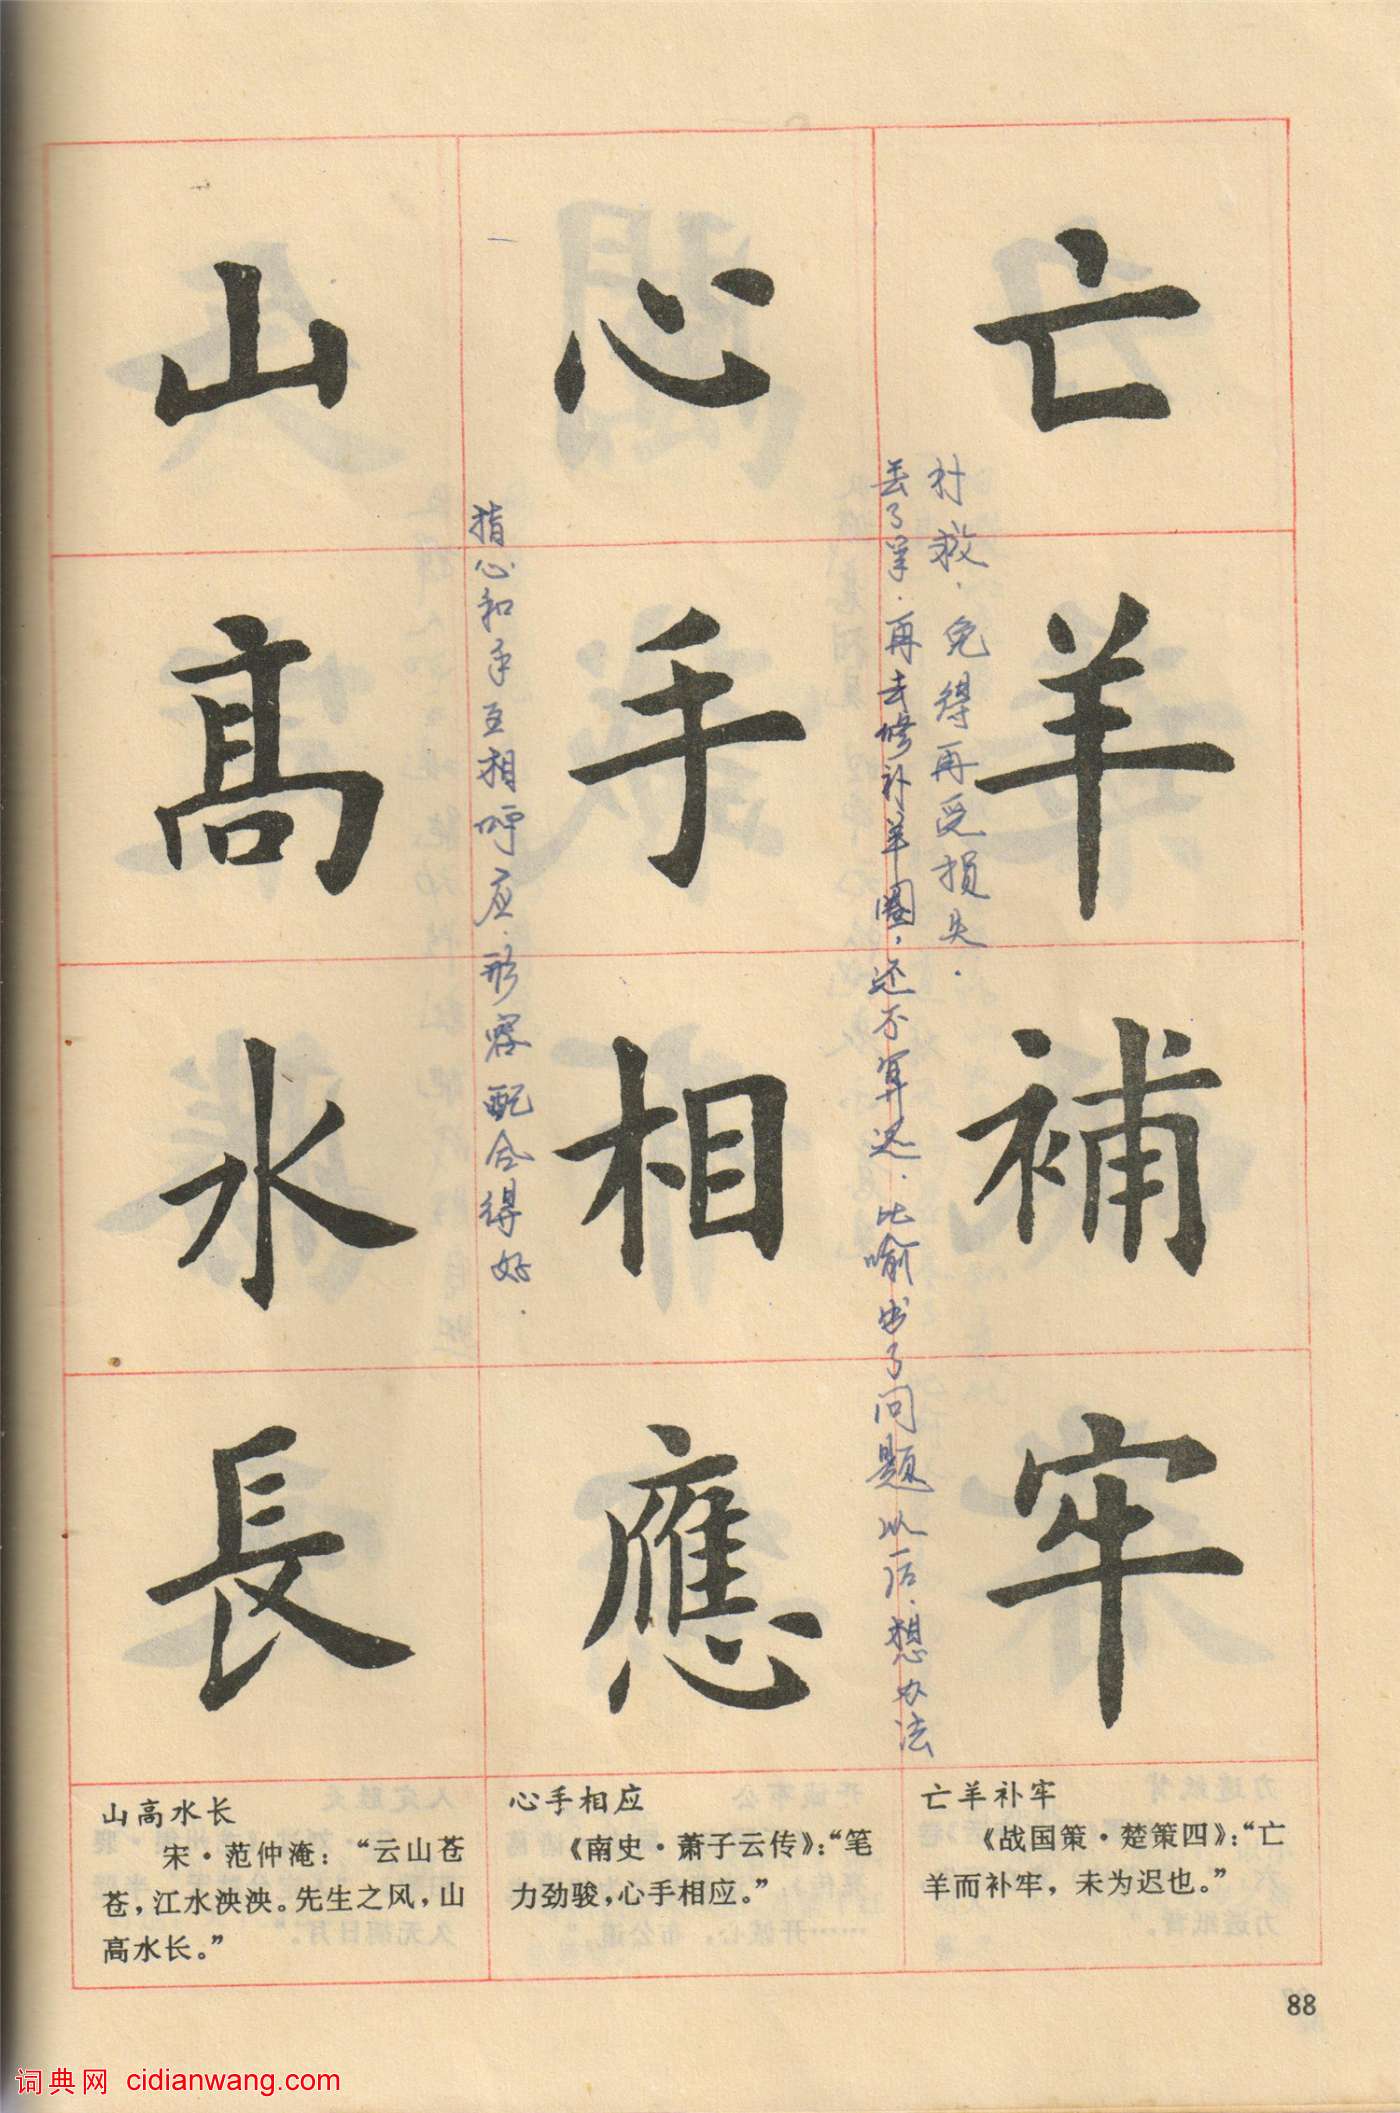 亡羊補牢
心手相應
山高水長
丢了羊.再去修补羊圈,还不算迟.比喻出了问题以后.想办法
补救.免得再受损失.
指心和手互相呼应.形容配合得好.
亡羊补牢
《战国策·楚策四》:“亡
羊而补牢,未为迟也。”
心手相应
《南史·萧子云传》:“笔
力劲骏,心手相应。”
山高水长
宋·范仲淹:“云山苍
苍,江水泱泱。先生之风,山
高水长。”
88
词典网 cidianwang.com